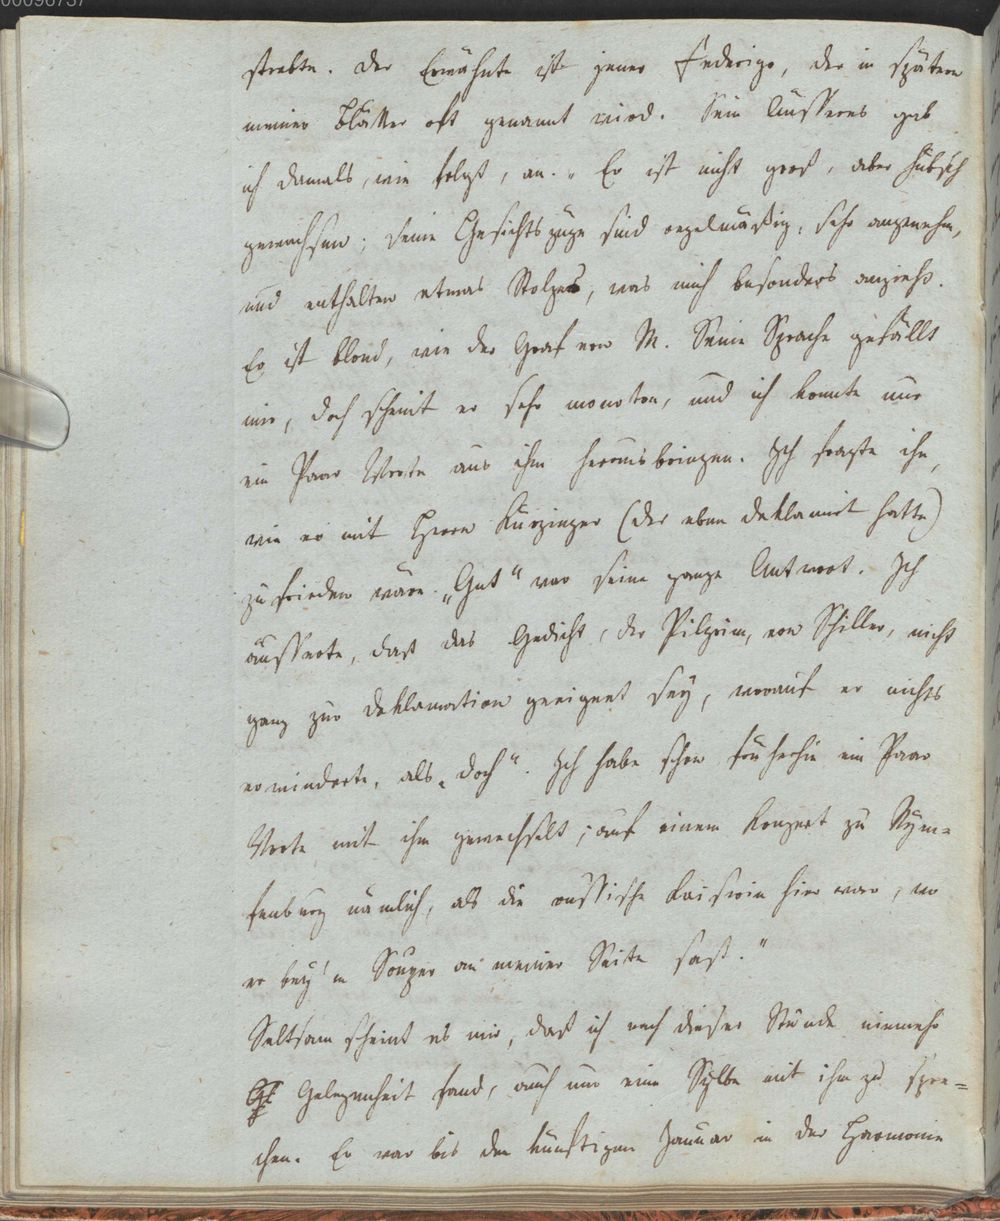 00096737
strebte. Der Erwähnte ist jener Federigo, der in spätern
meiner Blätter oft genannt wird. Sein Äusseres gab
ich damals, wie folgt, an. „Er ist nicht groß, aber hübsch
gewachsen; seine Gesichtszüge sind regelmäßig, sehr angenehm,
und enthalten etwas Stolzes, was mich besonders anzieht.
Er ist blond, wie der Graf von M. Seine Sprache gefällt
mir, doch scheint er sehr monoton, und ich konnte nur
ein Paar Worte aus ihm herausbringen. Ich fragte ihn,
wie er mit Herrn Kürzinger (der eben deklamirt hatte)
zufrieden wäre. „Gut“ war seine ganze Antwort. Ich
äusserte, daß das Gedicht, der Pilgrim, von Schiller, nicht
ganz zur Deklamation geeignet sey, worauf er nichts
erwiederte, als „doch“. Ich habe schon früherhin ein Paar
Worte mit ihm gewechselt; auf einem Konzert zu Nym=
fenburg nämlich, als die russische Kaiserin hier war, wo
er bey'm Souper an meiner Seite saß.“
Seltsam scheint es mir, daß ich nach dieser Stunde niemehr
Gelegenheit fand, auch nur eine Sylbe mit ihm zu spre=
chen. Er war bis den künftigen Januar in der Harmonie